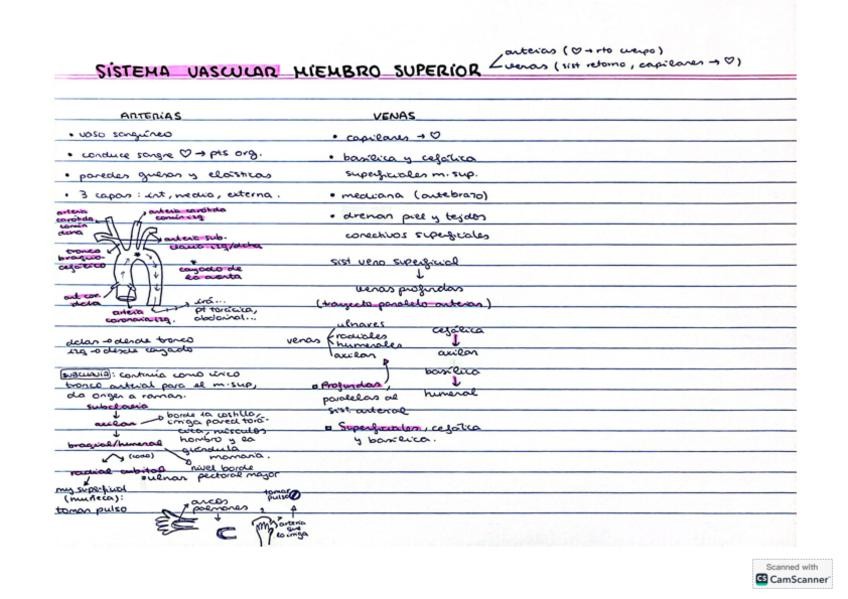 arterias (♡→rto cuerpo)
SISTEMA VASCULAR MIEMBRO SUPERIOR
venas (sist retorno, capilares → ♡)
ARTERIAS
• vaso sanguíneo
• conduce sangre ♡ → pts org.
• paredes gruesas y elásticas
• 3 capas: int, media, externa.
arteria carótida común dcha
arteria carótida común izq
arteria sub. clavia izq/dcha
tronco braquio-cefálico
cayado de la aorta
art cor. dcha
arteria coronaria izq.
irá...
pt torácica, abdominal...
dchas → desde tronco
izq → desde cayado
SUBCLAVIA: continúa como único
tronco arterial para el m. sup,
da origen a ramas.
subclavia
↓
axilar → borde 1a costilla,
irriga pared torá-
cica, músculos
hombro y la
glándula
mamaria.
↓
braquial/humeral
nivel borde
pectoral mayor
(codo)
radial cubital
• ulnar
muy superficial
(muñeca):
tomar pulso
arcos
palmares
tomar
pulso
arteria
que
lo irriga
VENAS
• capilares → ♡
• basílica y cefálica
superficiales m. sup.
• mediana (antebrazo)
• drenan piel y tejidos
conectivos superficiales
sist veno superficial
↓
venas profundas
(trayecto paralelo arterias)
venas
ulnares
radiales
humerales
axilar
cefálica
↓
axilar
basílica
↓
humeral
Profundas,
paralelas al
sist arterial
Superficiales, cefálica
y basílica.
Scanned with
CS CamScanner